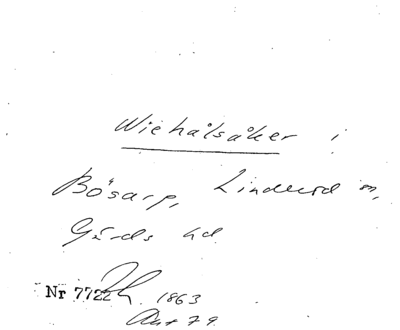 Wiehålsåker i
Bösarp, Linderöd sn,
Gärds hd
Nr 7722 1863